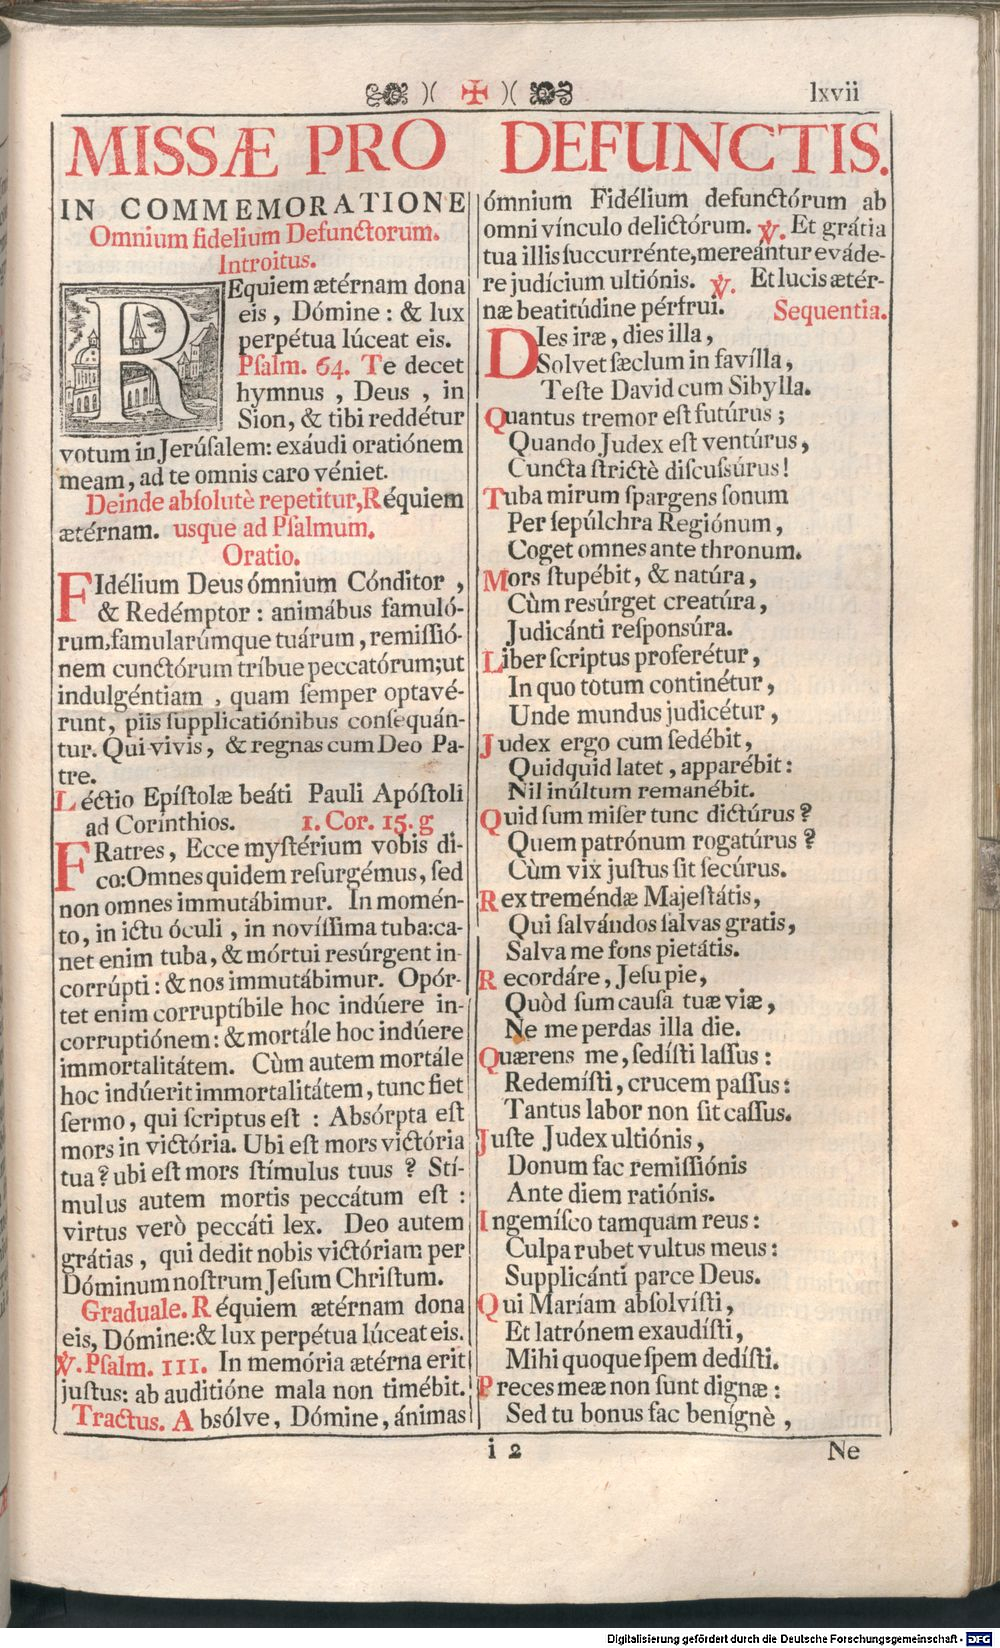 )( ✠ )( lxvii
MISSÆ PRO DEFUNCTIS.
IN COMMEMORATIONE
Omnium fidelium Defunctorum.
Introitus.
REquiem ætérnam dona
eis, Dómine: & lux
perpétua lúceat eis.
Pſalm. 64. Te decet
hymnus, Deus, in
Sion, & tibi reddétur
votum in Jerúſalem: exáudi oratiónem
meam, ad te omnis caro véniet.
Deinde abſolutè repetitur, Réquiem
ætérnam. usque ad Pſalmum.
Oratio.
FIdélium Deus ómnium Cónditor,
& Redémptor: animábus famuló-
rum, famularúmque tuárum, remiſſió-
nem cunctórum tríbue peccatórum; ut
indulgéntiam, quam ſemper optavé-
runt, piis ſupplicatiónibus conſequán-
tur. Qui vivis, & regnas cum Deo Pa-
tre.
Léctio Epíſtolæ beáti Pauli Apóſtoli
ad Corínthios. 1. Cor. 15. g.
FRatres, Ecce myſtérium vobis di-
co: Omnes quidem reſurgémus, ſed
non omnes immutábimur. In momén-
to, in ictu óculi, in novíſſima tuba: ca-
net enim tuba, & mórtui resúrgent in-
corrúpti: & nos immutábimur. Opór-
tet enim corruptíbile hoc indúere in-
corruptiónem: & mortále hoc indúere
immortalitátem. Cùm autem mortále
hoc indúerit immortalitátem, tunc fiet
ſermo, qui ſcriptus eſt: Abſórpta eſt
mors in victória. Ubi eſt mors victória
tua? ubi eſt mors ſtímulus tuus? Stí-
mulus autem mortis peccátum eſt:
virtus verò peccáti lex. Deo autem
grátias, qui dedit nobis victóriam per
Dóminum noſtrum Jeſum Chriſtum.
Graduale. Réquiem ætérnam dona
eis, Dómine: & lux perpétua lúceat eis.
℣. Pſalm. 111. In memória ætérna erit
juſtus: ab auditióne mala non timébit.
Tractus. Absólve, Dómine, ánimas
ómnium Fidélium defunctórum ab
omni vínculo delictórum. ℣. Et grátia
tua illis ſuccurrénte, mereántur eváde-
re judícium ultiónis. ℣. Et lucis ætér-
næ beatitúdine pérfrui. Sequentia.
DIes iræ, dies illa,
Solvet ſæclum in favílla,
Teſte David cum Sibylla.
Quantus tremor eſt futúrus;
Quando Judex eſt ventúrus,
Cuncta ſtrictè diſcuſsúrus!
Tuba mirum ſpargens ſonum
Per ſepúlchra Regiónum,
Coget omnes ante thronum.
Mors ſtupébit, & natúra,
Cùm resúrget creatúra,
Judicánti reſponsúra.
Liber ſcriptus proferétur,
In quo totum continétur,
Unde mundus judicétur,
Judex ergo cum ſedébit,
Quidquid latet, apparébit:
Nil inúltum remanébit.
Quid ſum miſer tunc dictúrus?
Quem patrónum rogatúrus?
Cùm vix juſtus ſit ſecúrus.
Rex treméndæ Majeſtátis,
Qui ſalvándos ſalvas gratis,
Salva me fons pietátis.
Recordáre, Jeſu pie,
Quòd ſum cauſa tuæ viæ,
Ne me perdas illa die.
Quærens me, ſedíſti laſſus:
Redemíſti, crucem paſſus:
Tantus labor non ſit caſſus.
Juſte Judex ultiónis,
Donum fac remiſſiónis
Ante diem ratiónis.
Ingemíſco tamquam reus:
Culpa rubet vultus meus:
Supplicánti parce Deus.
Qui Maríam abſolvíſti,
Et latrónem exaudíſti,
Mihi quoque ſpem dediſti.
Preces meæ non ſunt dignæ:
Sed tu bonus fac benígnè,
i 2 Ne
Digitalisierung gefördert durch die Deutsche Forschungsgemeinschaft - DFG